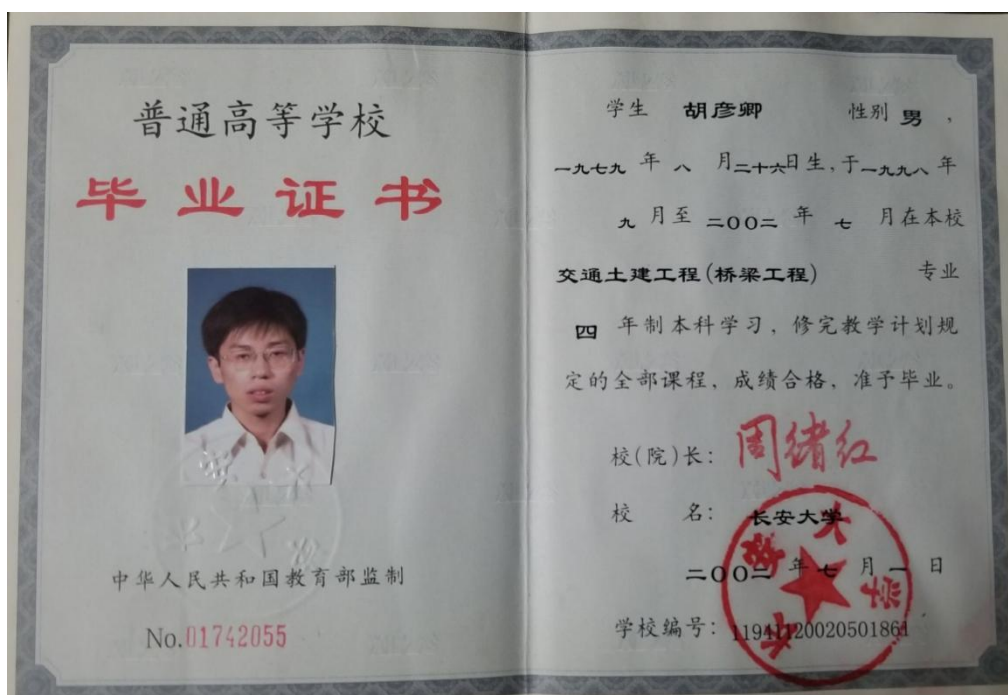 普通高等学校
毕业证书
中华人民共和国教育部监制
No.01742055
学生 胡彦卿 性别 男,
一九七九 年 八 月二十六日生,于一九九八 年
九 月至 二〇〇二 年 七 月在本校
交通土建工程(桥梁工程) 专业
四 年制本科学习,修完教学计划规
定的全部课程,成绩合格,准予毕业。
校(院)长: 周绪红
校 名: 长安大学
二〇〇二 年 七 月 一 日
学校编号: 11941120020501861